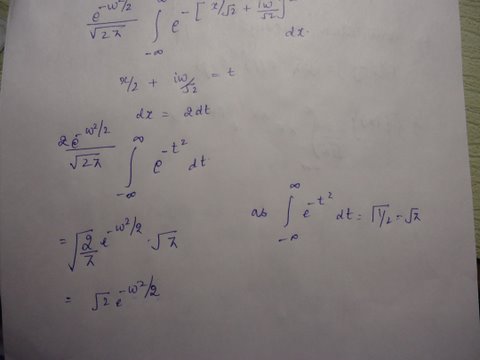 e^{-w²/2} / √2π ∫_{-∞}^{∞} e^{-[x/√2 + iw/√2]} dx.
x/2 + iw/√2 = t
dx = 2dt
2e^{-w²/2} / √2π ∫_{-∞}^{∞} e^{-t²} dt.
as ∫_{-∞}^{∞} e^{-t²} dt = √1/2 = √π
= √2/π e^{-w²/2} · √π
= √2 e^{-w²/2}